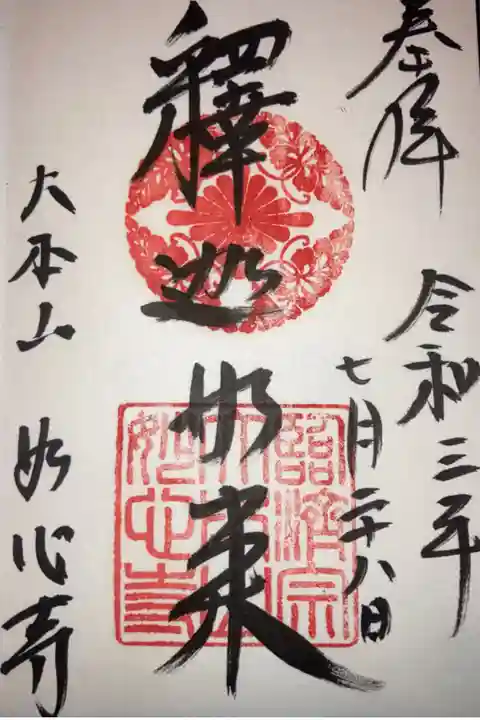 奉拝
令和三年
七月二十八日
釋迦如来
大本山 妙心寺
臨済宗
大本山
妙心寺